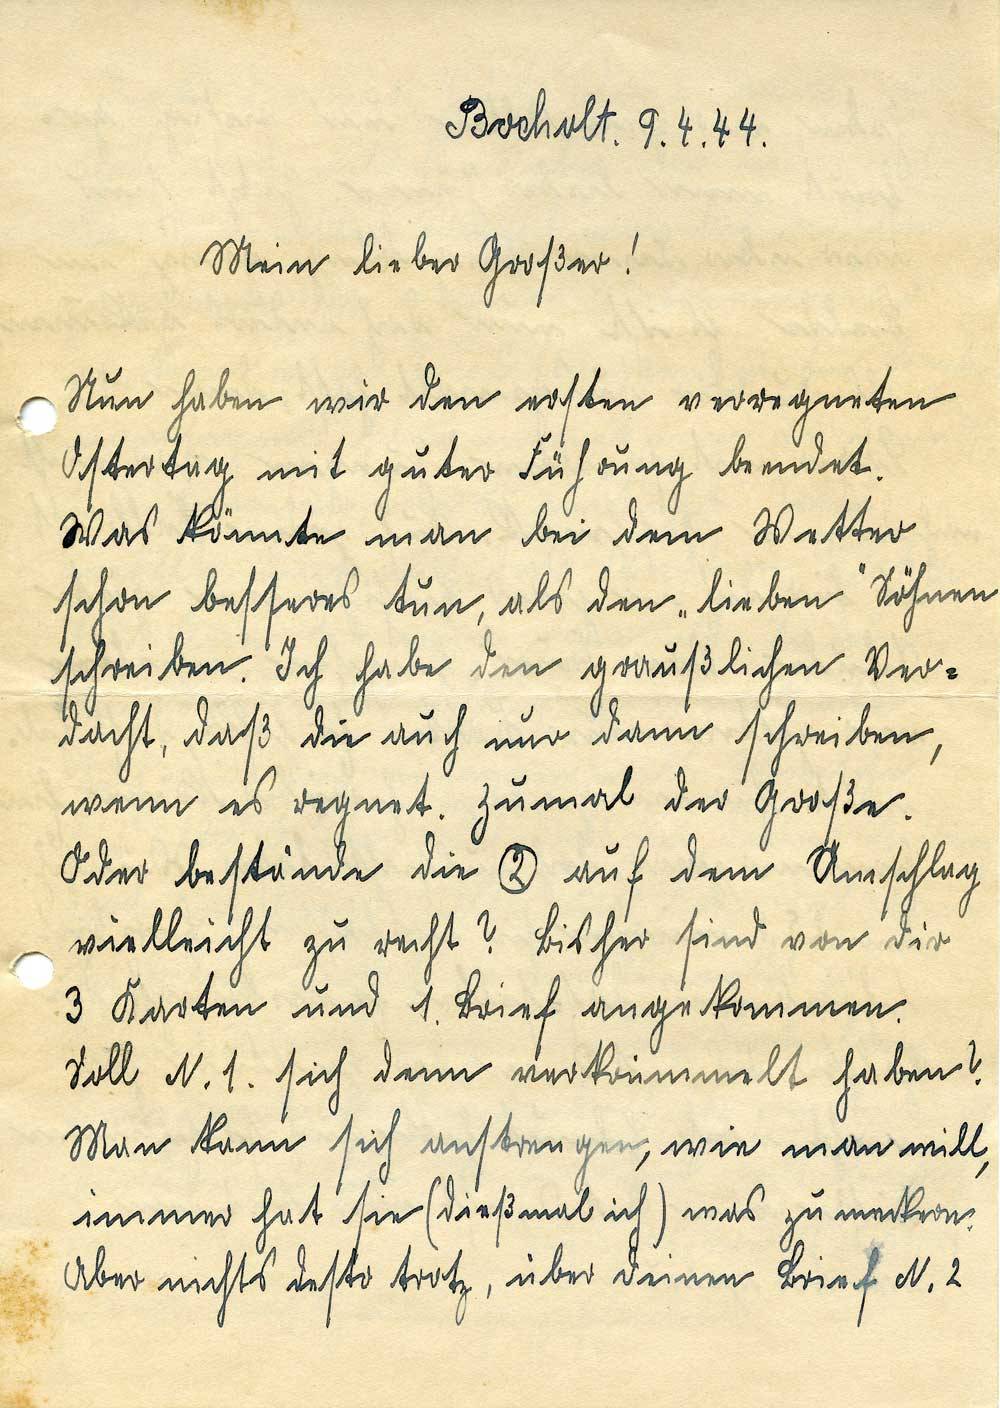 Bocholt. 9.4.44.
Mein lieber Großer!
Nun haben wir den ersten verregneten
Ostertag mit guter Führung beendet.
Was könnte man bei dem Wetter
schon besseres tun, als den „lieben" Söhnen
schreiben. Ich habe den graußlichen Ver=
dacht, daß die auch nur dann schreiben,
wenn es regnet. Zumal der Große.
Oder bestände die ② auf dem Umschlag
vielleicht zu recht? Bisher sind von dir
3 Karten und 1. Brief angekommen.
Soll N.1. sich denn verkrümmelt haben?
Man kann sich anstrengen, wie man will,
immer hat sie (dießmal ich) was zu meckern.
Aber nichts desto trotz, über deinen Brief N.2